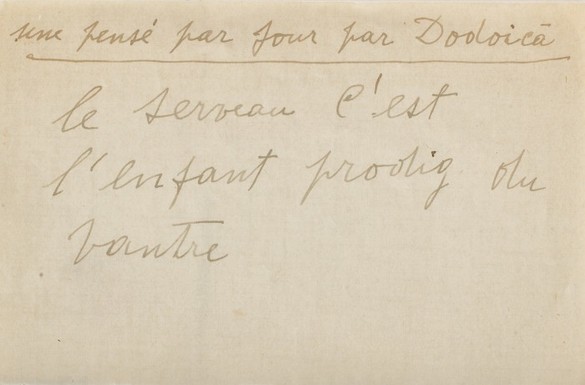 une pensé par jour par Dodoică
le serveau c'est
l'enfant prodig du
vantre